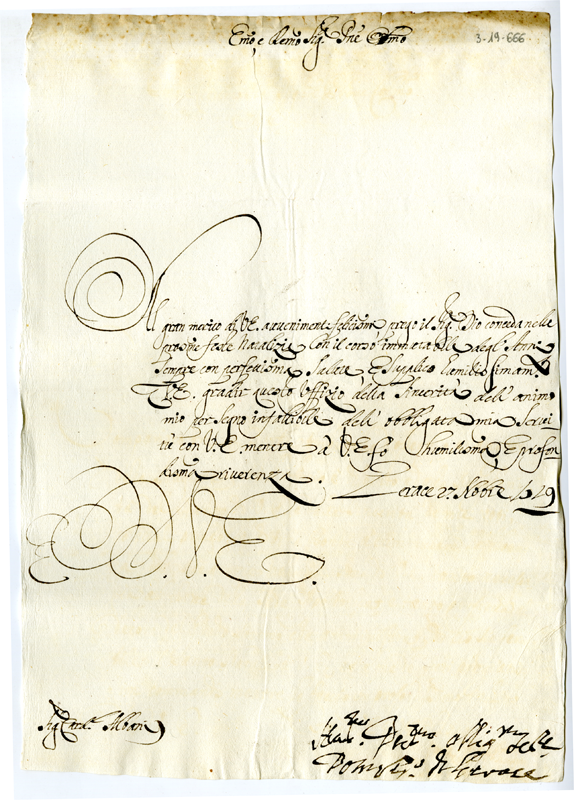 Emo, e Remo Sig. Pne Colmo
3-19-666
Al gran merito di V.E. avvenimenti felicissimi prego il Sig. Dio conceda nelle
prossime feste Natalizie, con il corso immutabile degl'Anni
sempre con perfettissima salute, E supplico humilissimamte
V.E. gradir questo Uffizio della sincerità dell'animo
mio per segno infallibile dell'obbligata mia servi
tù con V.E. mentre à V.E. fò humilissima, E profon
dissima riverenza. Gerace 27 Nbbre 1719
E. V. E.
Sig. Card. Albani
Humo Devmo obligmo
di Gerace